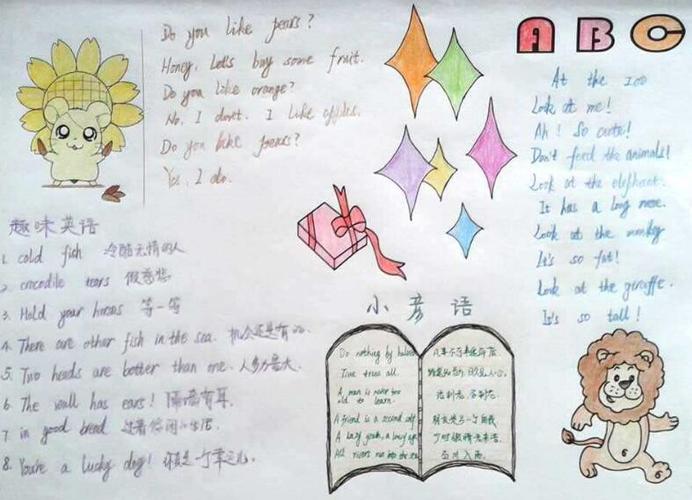 Do you like pears?
Honey, Let's buy some fruit.
Do you like orange?
No, I don't. I like apples.
Do you like pears?
Yes, I do.
ABC
At the zoo
Look at me!
Ah! So cute!
Don't feed the animals!
Look at the elephant.
It has a long nose.
Look at the monkey
It's so fat!
Look at the giraffe.
It's so tall!
趣味英语
1. cold fish 冷酷无情的人
2. crocodile tears 假慈悲
3. Hold your horses 等一等
4. There are other fish in the sea. 机会还是有的.
5. Two heads are better than one. 人多力量大.
6. The wall has ears! 隔墙有耳.
7. in good bread 过着悠闲的生活.
8. You're a lucky dog! 你真是一个幸运儿.
小彦语
Do nothing by halves
Time tries all.
A man is never too
old to learn.
A friend is a second self
A lazy youth, a lousy age
All rivers run into the sea
凡事不可半途而废
活到老, 学到老.
朋友是另一个自我